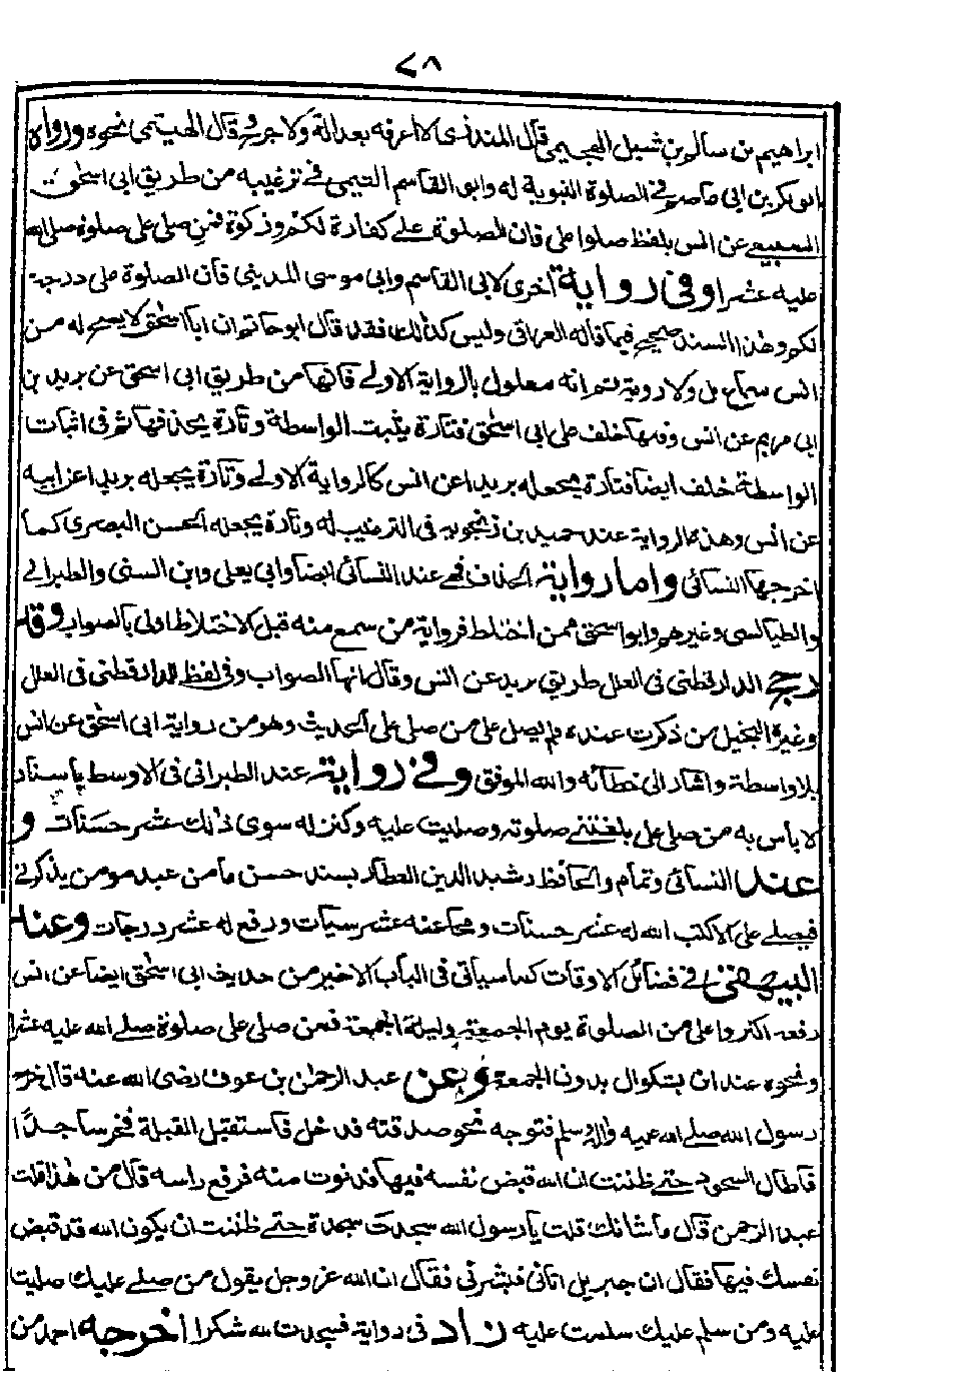 ٧٨
ابراهيم بن سالم بن شبل الهجيمي قال المنذري لا اعرفه بعدالة ولا جرح وقال الهيتمي نحوه ورواه
ابو بكر بن ابي عاصم في الصلوة النبوية له وابو القاسم التيمي في ترغيبه من طريق ابي اسحٰق
السبيعي عن انس بلفظ صلوا علي فان الصلوة علي كفارة لكم وزكوة فمن صلى علي صلوة صلى الله
عليه عشرا وفي رواية اخرى لابي القاسم وابي موسى المديني فان الصلوة علي درجة
لكم وهذا السند صحيح فيما قاله العراقي وليس كذلك فقد قال ابو حاتم ان ابا اسحٰق لا يصح له من
انس سماع بل ولا روية ثم انه معلول بالرواية الاولى فانها من طريق ابي اسحق عن بريد بن
ابي مريم عن انس وفيها خلف على ابي اسحٰق فتارة يثبت الواسطة وتارة يحذفها ثم في اثبات
الواسطة خلف ايضا فتارة يجعله بريدا عن انس كالرواية الاولى وتارة يجعله بريدا عن ابيه
عن انس وهذه الرواية عند حميد بن زنجويه في الترغيب له وتارة يجعله الحسن البصري كما
اخرجها النسائي واما رواية الحذف فهي عند النسائي ايضا وابي يعلى وابن السني والطبراني
والطيالسي وغيرهم وابو اسحق ممن اختلط فرواية من سمع منه قبل الاختلاط اولى بالصواب وقد
رجح الدارقطني في العلل طريق بريد عن انس وقال انها الصواب وفي لفظ للدارقطني في العلل
وغيره البخيل من ذكرت عنده فلم يصل علي من صلى علي الحديث وهو من رواية ابي اسحٰق عن انس
بلا واسطة واشار الى خطائه والله الموفق وفي رواية عند الطبراني في الاوسط باسناد
لا باس به من صلى علي بلغتني صلوته وصليت عليه وكتب له سوى ذلك عشر حسنات و
عند النسائي وتمام والحافظ رشيد الدين العطار بسند حسن ما من عبد مومن يذكرني
فيصلي علي الا كتب الله له عشر حسنات ومحا عنه عشر سيات ورفع له عشر درجات وعند
البيهقي في فضائل الاوقات كما سياتي في الباب الاخير من حديث ابي اسحٰق ايضا عن انس
رفعه اكثروا علي من الصلوة يوم الجمعة وليلة الجمعة فمن صلى علي صلوة صلى الله عليه عشرا
ونحوه عند ابن بشكوال بدون الجمعة وعن عبد الرحمٰن بن عوف رضى الله عنه قال خرج
رسول الله صلى الله عليه واله وسلم فتوجه نحو صدقته فدخل فاستقبل القبلة فخر ساجدًا
فاطال السجود حتى ظننت ان الله قبض نفسه فيها فدنوت منه فرفع راسه قال من هٰذا قلت
عبد الرحمن قال ما شانك قلت يا رسول الله سجدت سجدة حتى ظننت ان يكون الله قد قبض
نفسك فيها فقال ان جبريل اتاني فبشرني فقال ان الله عز وجل يقول من صلى عليك صليت
عليه ومن سلم عليك سلمت عليه زاد في رواية فسجدت لله شكرا اخرجه احمد من